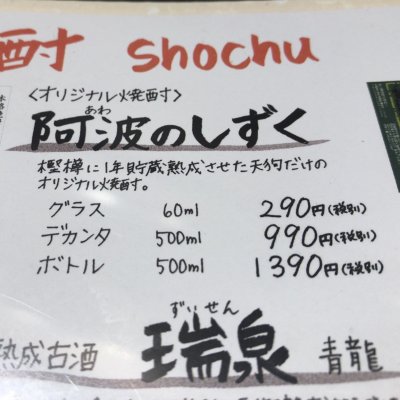 酎 shochu
<オリジナル焼酎>
あわ
阿波のしずく
樫樽に1年貯蔵熟成させた天狗だけの
オリジナル焼酎。
グラス 60ml 290円(税別)
デカンタ 500ml 990円(税別)
ボトル 500ml 1390円(税別)
ずいせん
熟成古酒 瑞泉 青龍